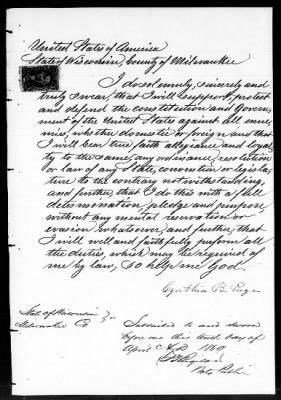 United States of America
State of Wisconsin, County of Milwaukee
I do solemnly, sincerely and
truly swear, that I will support, protect
and defend the constitution and Govern-
ment of the United States against all ene-
mies, whether domestic or foreign and that
I will bear true faith allegiance and loyal-
ty to the same, any ordinance, resolution
or law of any State, convention or legisla-
ture to the contrary notwithstanding,
and further, that I do this with a full
determination, pledge and purpose,
without any mental reservation or
evasion whatsoever, and further, that
I will well and faithfully perform all
the duties, which may be required of
me by law, So help me God.
Cynthia B.
State of Wisconsin } ss
Milwaukee Co
Subscribed to and sworn
before me this day of
April A.D. 186